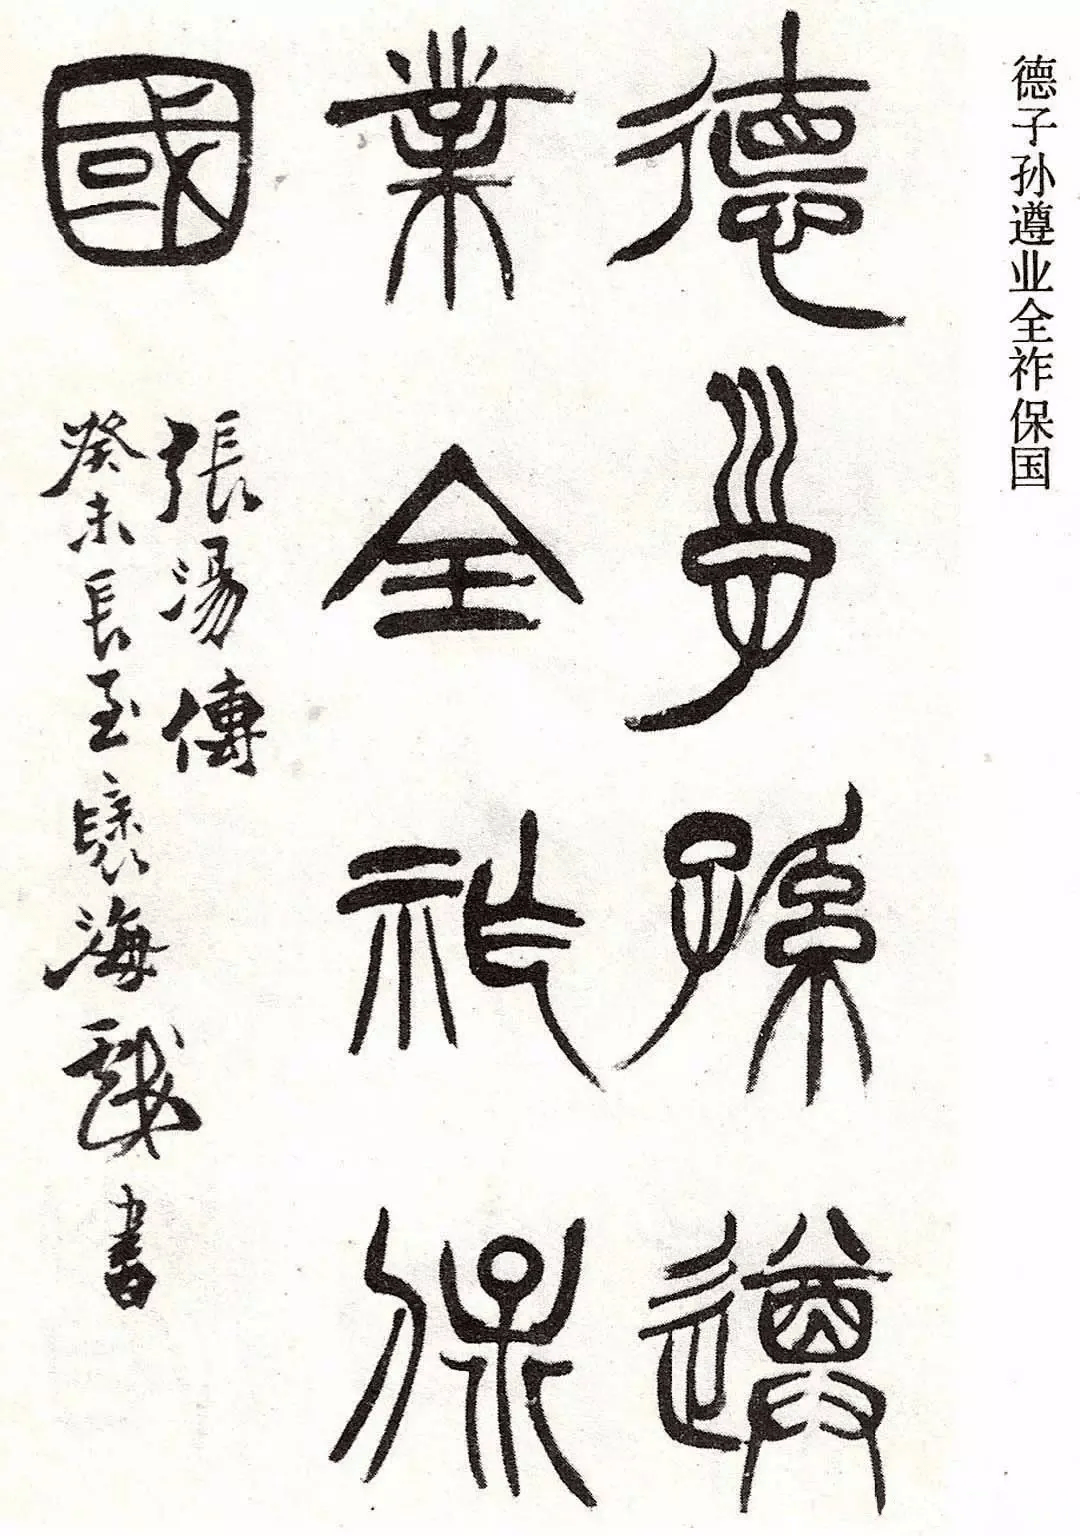 德子孙遵业全祚保国
德子孫遵
業全祚保
國
張湯傳
癸未長至襄海戲書